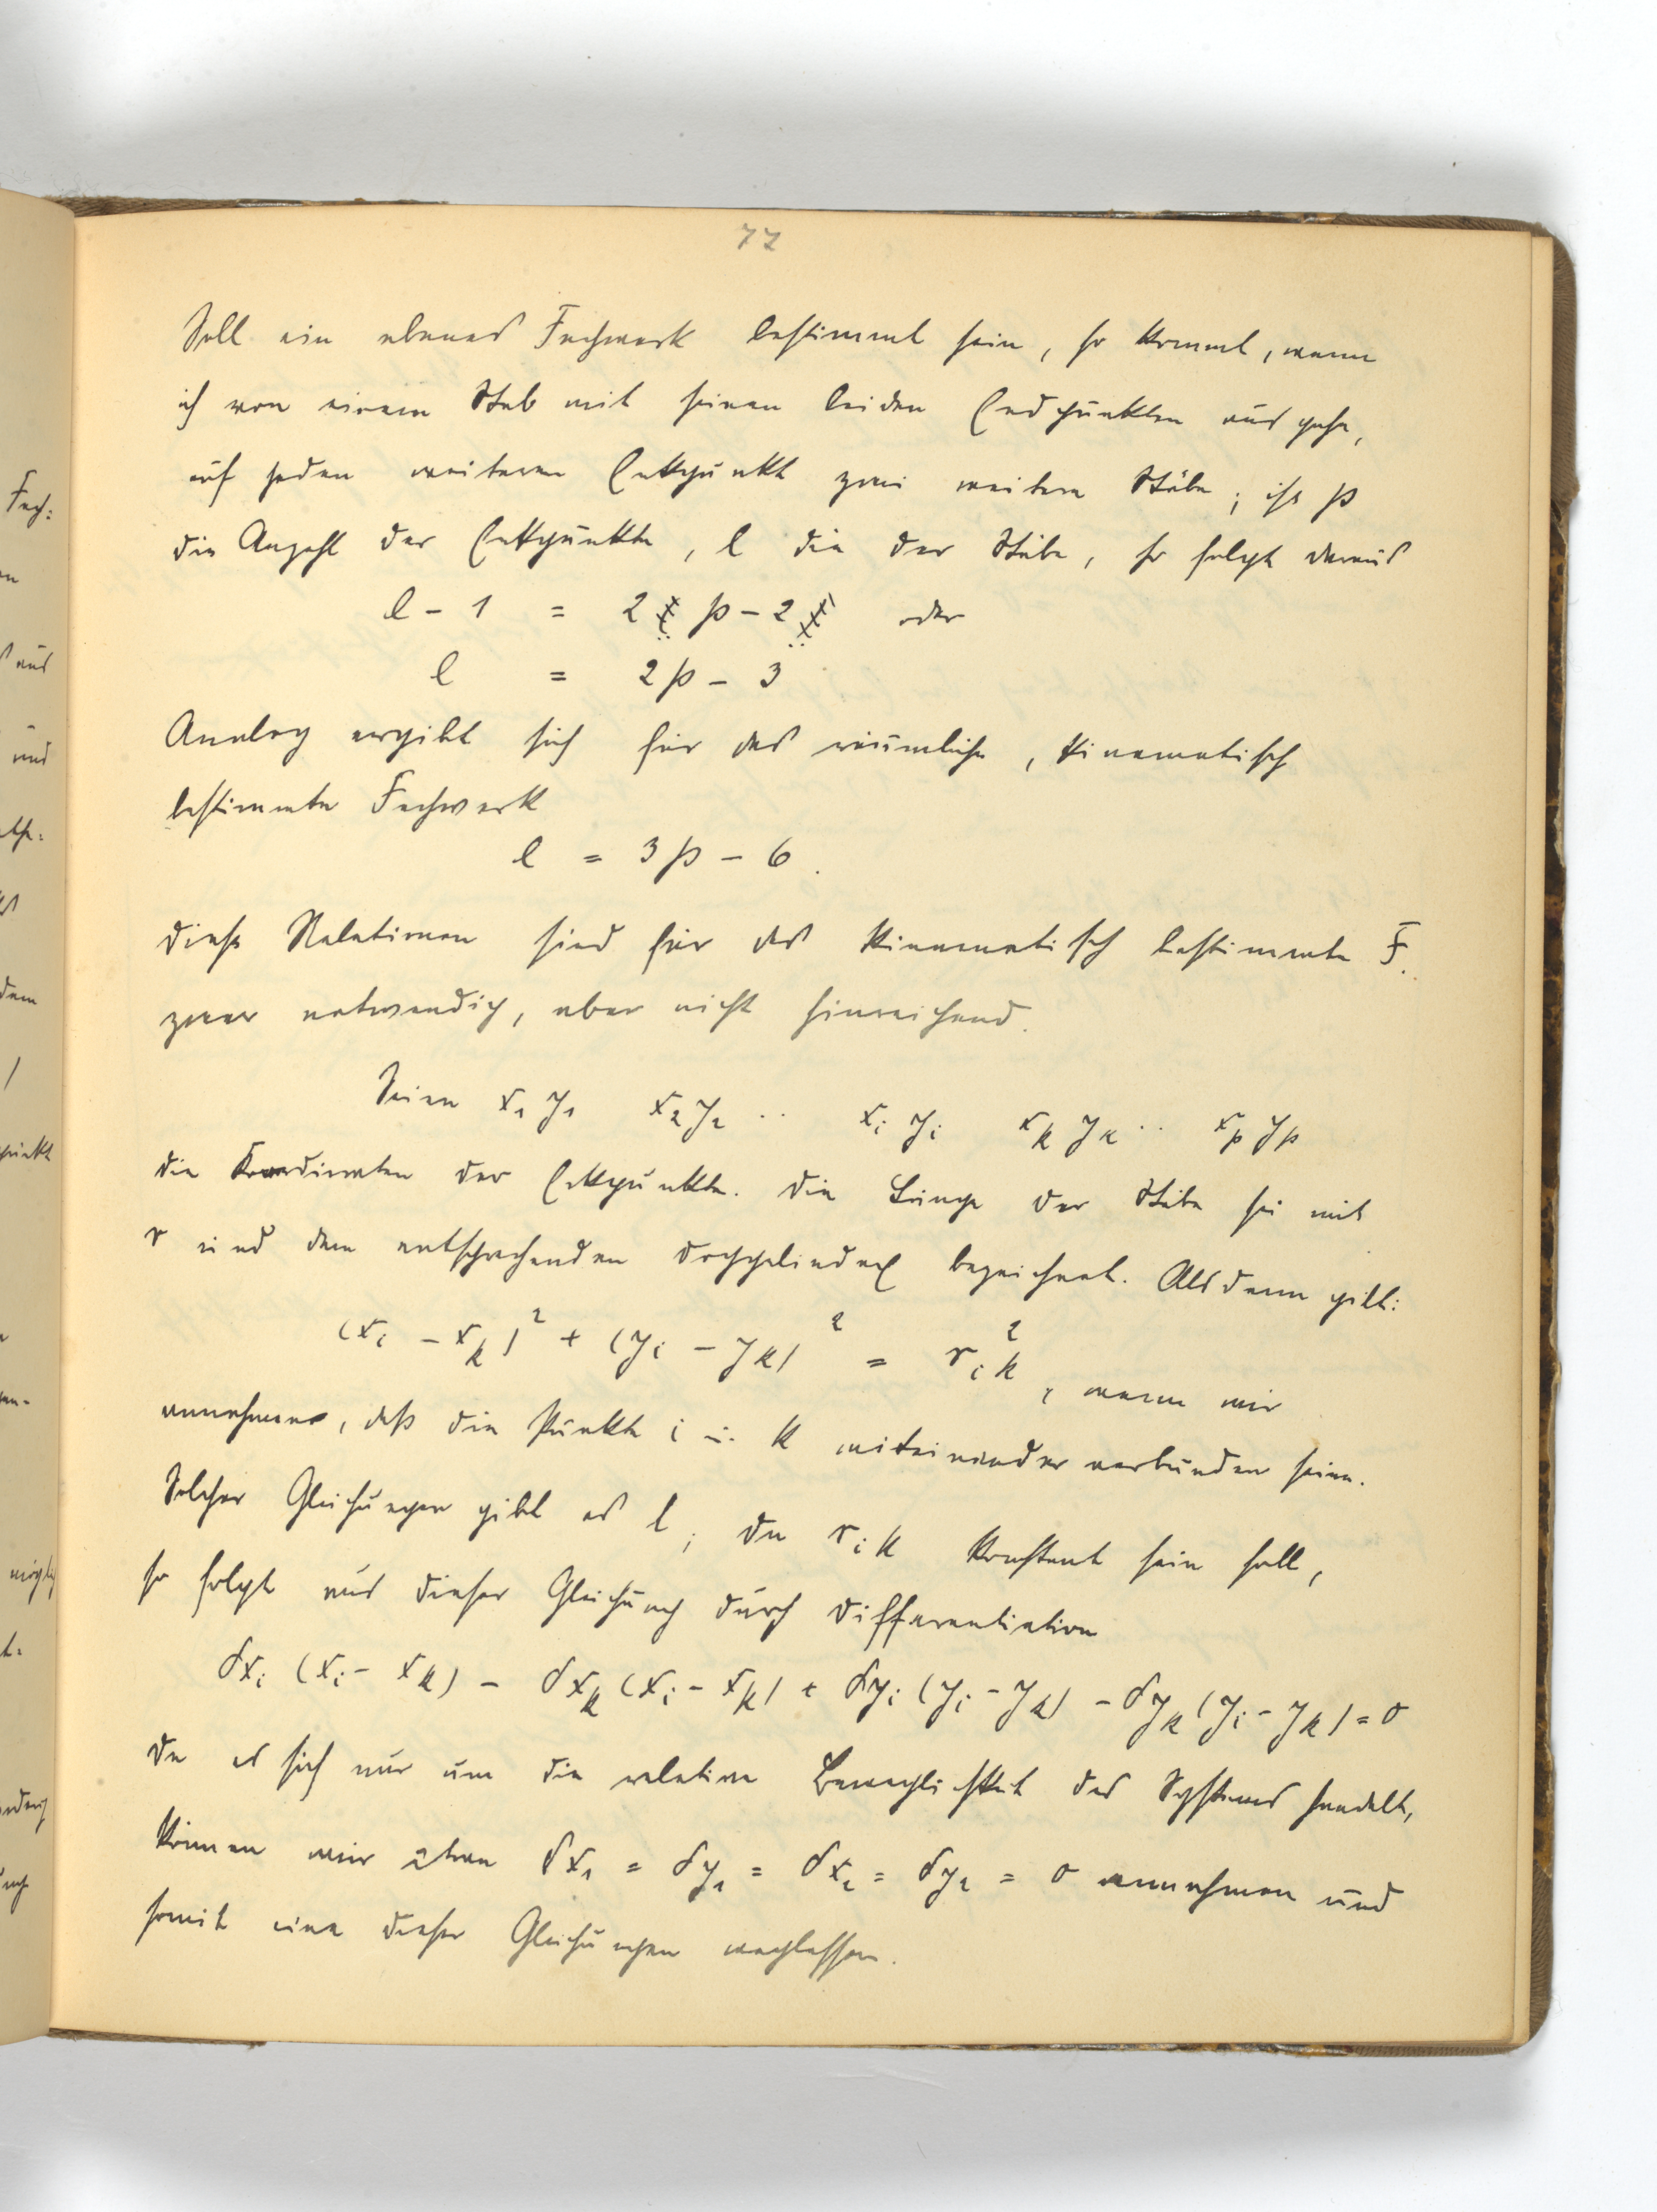 77
Soll ein ebenes Fachwerk bestimmt sein, so kommt, wenn
ich von einem Stab mit seinen beiden Endpunkten ausgehe,
auf jeden weiteren Eckpunkt zwei weitere Stäbe; ist p
die Anzahl der Eckpunkte, l die der Stäbe, so folgt daraus
l - 1 = 2 p - 2 oder
l = 2p - 3
Analog ergibt sich für das räumliche, kinematisch
bestimmte Fachwerk
l = 3p - 6.
Diese Relationen sind für das kinematisch bestimmte F.
zwar notwendig, aber nicht hinreichend.
Seien x₁ y₁ x₂ y₂ ·· xᵢ yᵢ xₖ yₖ ·· xₚ yₚ
die Koordinaten der Eckpunkte. Die Länge der Stäbe sei mit
r und dem entsprechenden Doppelindex bezeichnet. Alsdann gilt:
(xᵢ - xₖ)² + (yᵢ - yₖ)² = rᵢₖ², wenn wir
annehmen, daß die Punkte i u. k miteinander verbunden seien.
Solcher Gleichungen gibt es l; da rᵢₖ konstant sein soll,
so folgt aus dieser Gleichung durch Differentiation
δxᵢ (xᵢ - xₖ) - δxₖ (xᵢ - xₖ) + δyᵢ (yᵢ - yₖ) - δyₖ (yᵢ - yₖ) = 0
Da es sich nur um die relative Beweglichkeit des Systems handelt,
können wir etwa δx₁ = δy₁ = δx₂ = δy₂ = 0 annehmen und
somit eine dieser Gleichungen weglassen.